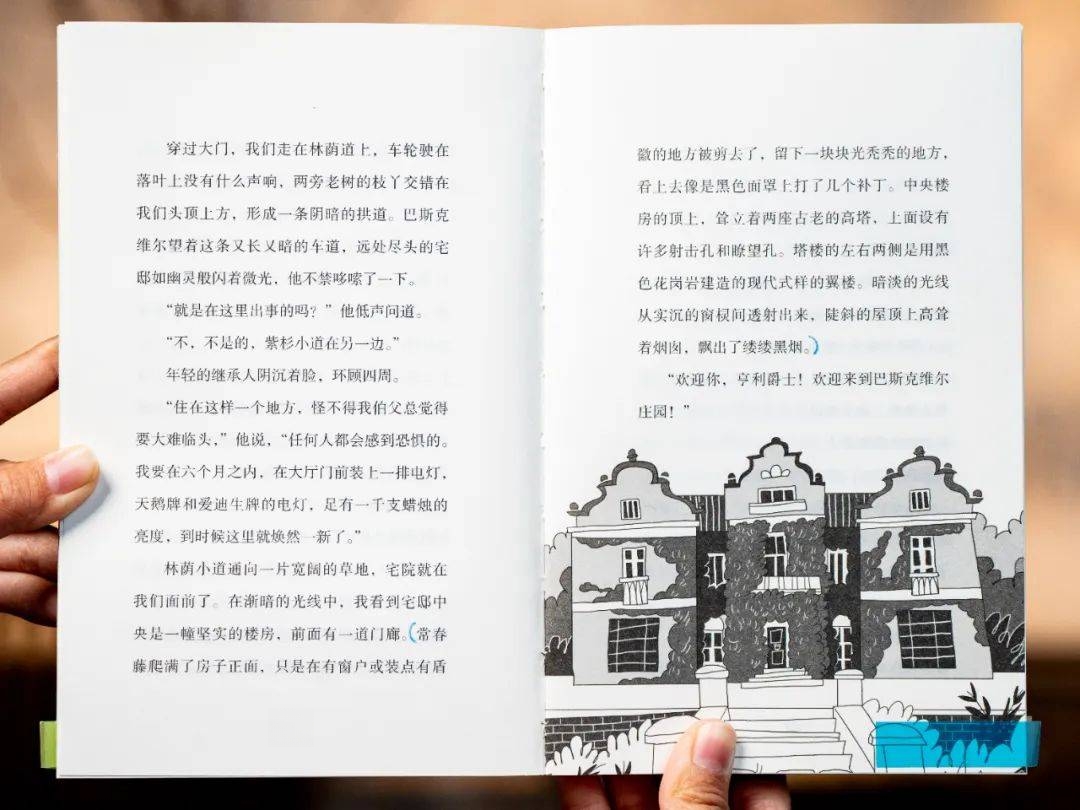 穿过大门，我们走在林荫道上，车轮驶在
落叶上没有什么声响，两旁老树的枝丫交错在
我们头顶上方，形成一条阴暗的拱道。巴斯克
维尔望着这条又长又暗的车道，远处尽头的宅
邸如幽灵般闪着微光，他不禁哆嗦了一下。
“就是在这里出事的吗？”他低声问道。
“不，不是的，紫杉小道在另一边。”
年轻的继承人阴沉着脸，环顾四周。
“住在这样一个地方，怪不得我伯父总觉得
要大难临头，”他说，“任何人都会感到恐惧的。
我要在六个月之内，在大厅门前装上一排电灯，
天鹅牌和爱迪生牌的电灯，足有一千支蜡烛的
亮度，到时候这里就焕然一新了。”
林荫小道通向一片宽阔的草地，宅院就在
我们面前了。在渐暗的光线中，我看到宅邸中
央是一幢坚实的楼房，前面有一道门廊。常春
藤爬满了房子正面，只是在有窗户或装点有盾
徽的地方被剪去了，留下一块块光秃秃的地方，
看上去像是黑色面罩上打了几个补丁。中央楼
房的顶上，耸立着两座古老的高塔，上面设有
许多射击孔和瞭望孔。塔楼的左右两侧是用黑
色花岗岩建造的现代式样的翼楼。暗淡的光线
从实沉的窗棂间透射出来，陡斜的屋顶上高耸
着烟囱，飘出了缕缕黑烟。
“欢迎你，亨利爵士！欢迎来到巴斯克维尔
庄园！”